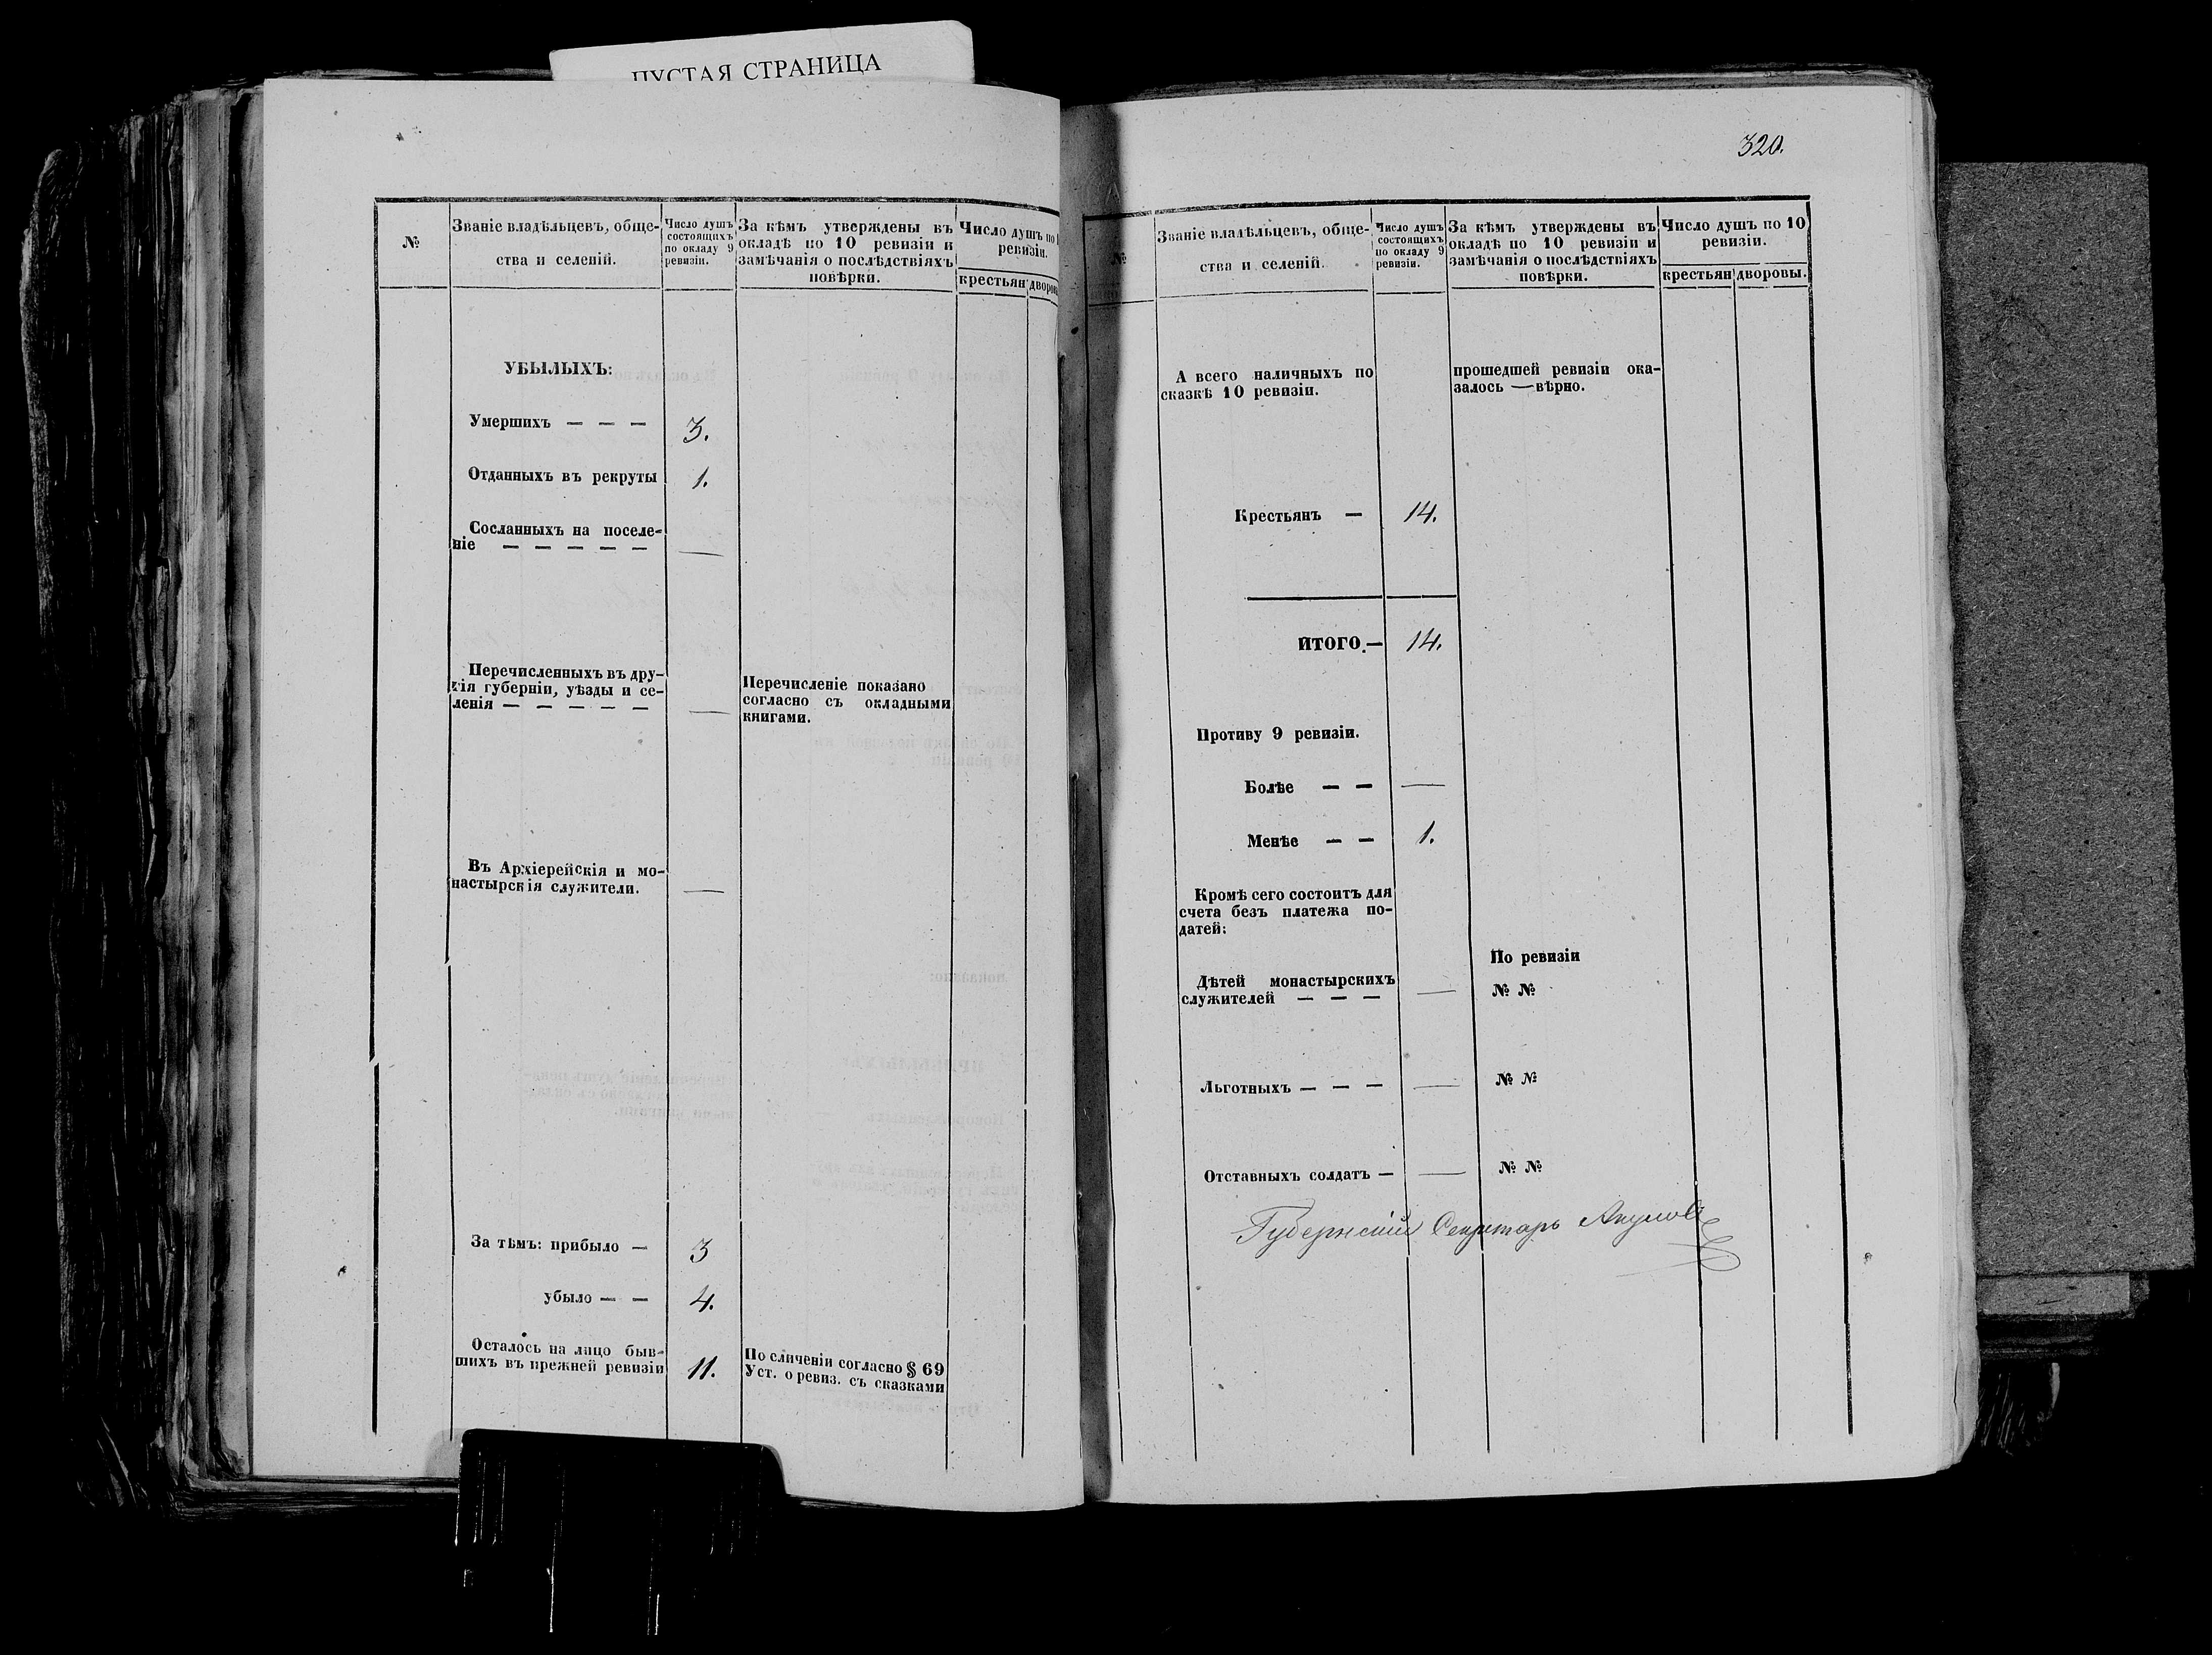 ПУСТАЯ СТРАНИЦА
№
Званіе владѣльцевъ, обще-
ства и селеній.
Число душъ
состоящихъ
по окладу 9
ревизіи.
За кѣмъ утверждены въ
окладѣ по 10 ревизіи и
замѣчанія о послѣдствіяхъ
повѣрки.
Число душъ по
ревизіи.
крестьян
дворовы
УБЫЛЫХЪ:
Умершихъ — — —
3.
Отданныхъ въ рекруты
1.
Сосланныхъ на поселе-
ніе — — — — —
—
Перечисленныхъ въ дру-
гія губерніи, уѣзды и се-
ленія — — — — —
—
Перечисленіе показано
согласно съ окладными
книгами.
Въ Архіерейскія и мо-
настырскія служители.
—
За тѣмъ: прибыло —
3
убыло — —
4.
Осталось на лицо быв-
шихъ въ прежней ревизіи
11.
По сличеніи согласно § 69
Уст. о ревиз. съ сказками
320.
№
Званіе владѣльцевъ, обще-
ства и селеній.
Число душъ
состоящихъ
по окладу 9
ревизіи.
За кѣмъ утверждены въ
окладѣ по 10 ревизіи и
замѣчанія о послѣдствіяхъ
повѣрки.
Число душъ по 10
ревизіи.
крестьян
дворовы.
А всего наличныхъ по
сказкѣ 10 ревизіи.
прошедшей ревизіи ока-
залось — вѣрно.
Крестьянъ —
14.
ИТОГО.—
14.
Противу 9 ревизіи.
Болѣе — —
—
Менѣе — —
1.
Кромѣ сего состоитъ для
счета безъ платежа по-
датей:
По ревизіи
Дѣтей монастырскихъ
служителей — — —
—
№ №
Льготныхъ — — —
—
№ №
Отставныхъ солдатъ —
—
№ №
Губернскій Секретарь